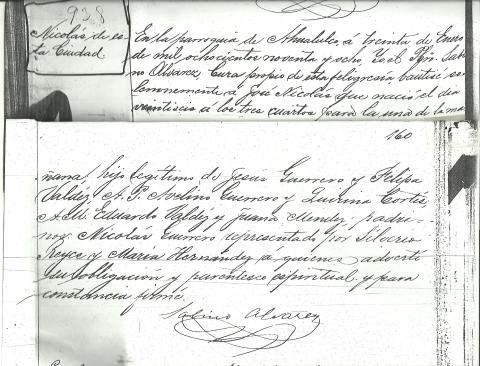 938
Nicolás de es-
ta Ciudad.
En la parroquia de Ahualulco, á treinta de Enero
de mil ochocientos noventa y ocho, Yo el Pbro. Sabi-
no Alvarez, Cura propio de esta feligresía bauticé so-
lemnemente a José Nicolás que nació el día
veintiseis á los tres cuartos para la una de la ma-
160
ñana, hijo legítimo de Jesús Guerrero y Felipa
Valdez. A. P. Avelino Guerrero y Quirina Cortés,
A. M. Eduardo Valdez y Juana Mendez, padri-
nos Nicolás Guerrero representado por Silverio
Reyes y María Hernández a quienes advertí
su obligación y parentesco espiritual, y para
constancia firmé.
Sabino Alvarez